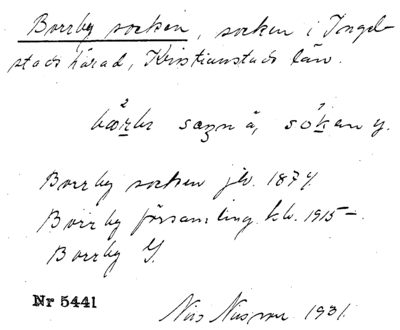 Borrby socken, socken i Ingel-
stads härad, Kristianstads län.
Borrby socken jb. 1874.
Borrby församling kb. 1915–.
Borrby G.
Nr 5441
Nils Nilsson 1931.